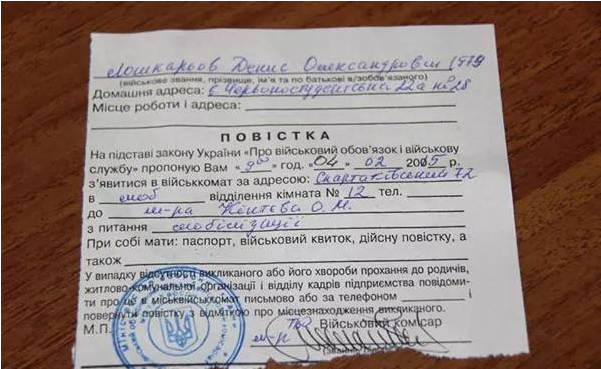 Лошкарьов Денис Олександрович 1979
(військове звання, прізвище, ім'я та по батькові в/зобов'язаного)
Домашня адреса: 22а № 28
Місце роботи і адреса:
ПОВІСТКА
На підставі закону України «Про військовий обов'язок і військову
службу» пропоную Вам « 9⁰⁰ » год. «04 » 02 2005 р.
з'явитися в військкомат за адресою: 72
в моб відділення кімната № 12 тел.
до м-ра О. М.
з питання мобілізації
При собі мати: паспорт, військовий квиток, дійсну повістку, а
також
У випадку відсутності викликаного або його хвороби прохання до родичів,
житлово-комунальної організації і відділу кадрів підприємства повідоми-
ти про це в міськвійськкомат письмово або за телефоном і
повернути повістку з відміткою про місцезнаходження викликаного.
М.П. Військовий комісар
м-р